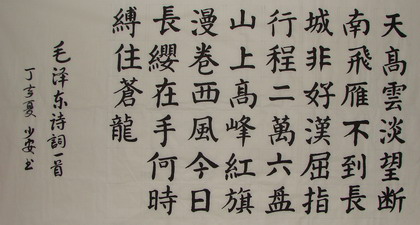 天高雲淡望断
南飛雁不到長
城非好漢屈指
行程二萬六盘
山上高峰紅旗
漫卷西風今日
長纓在手何時
縛住蒼龍
毛泽东诗詞一首
丁亥夏少安书